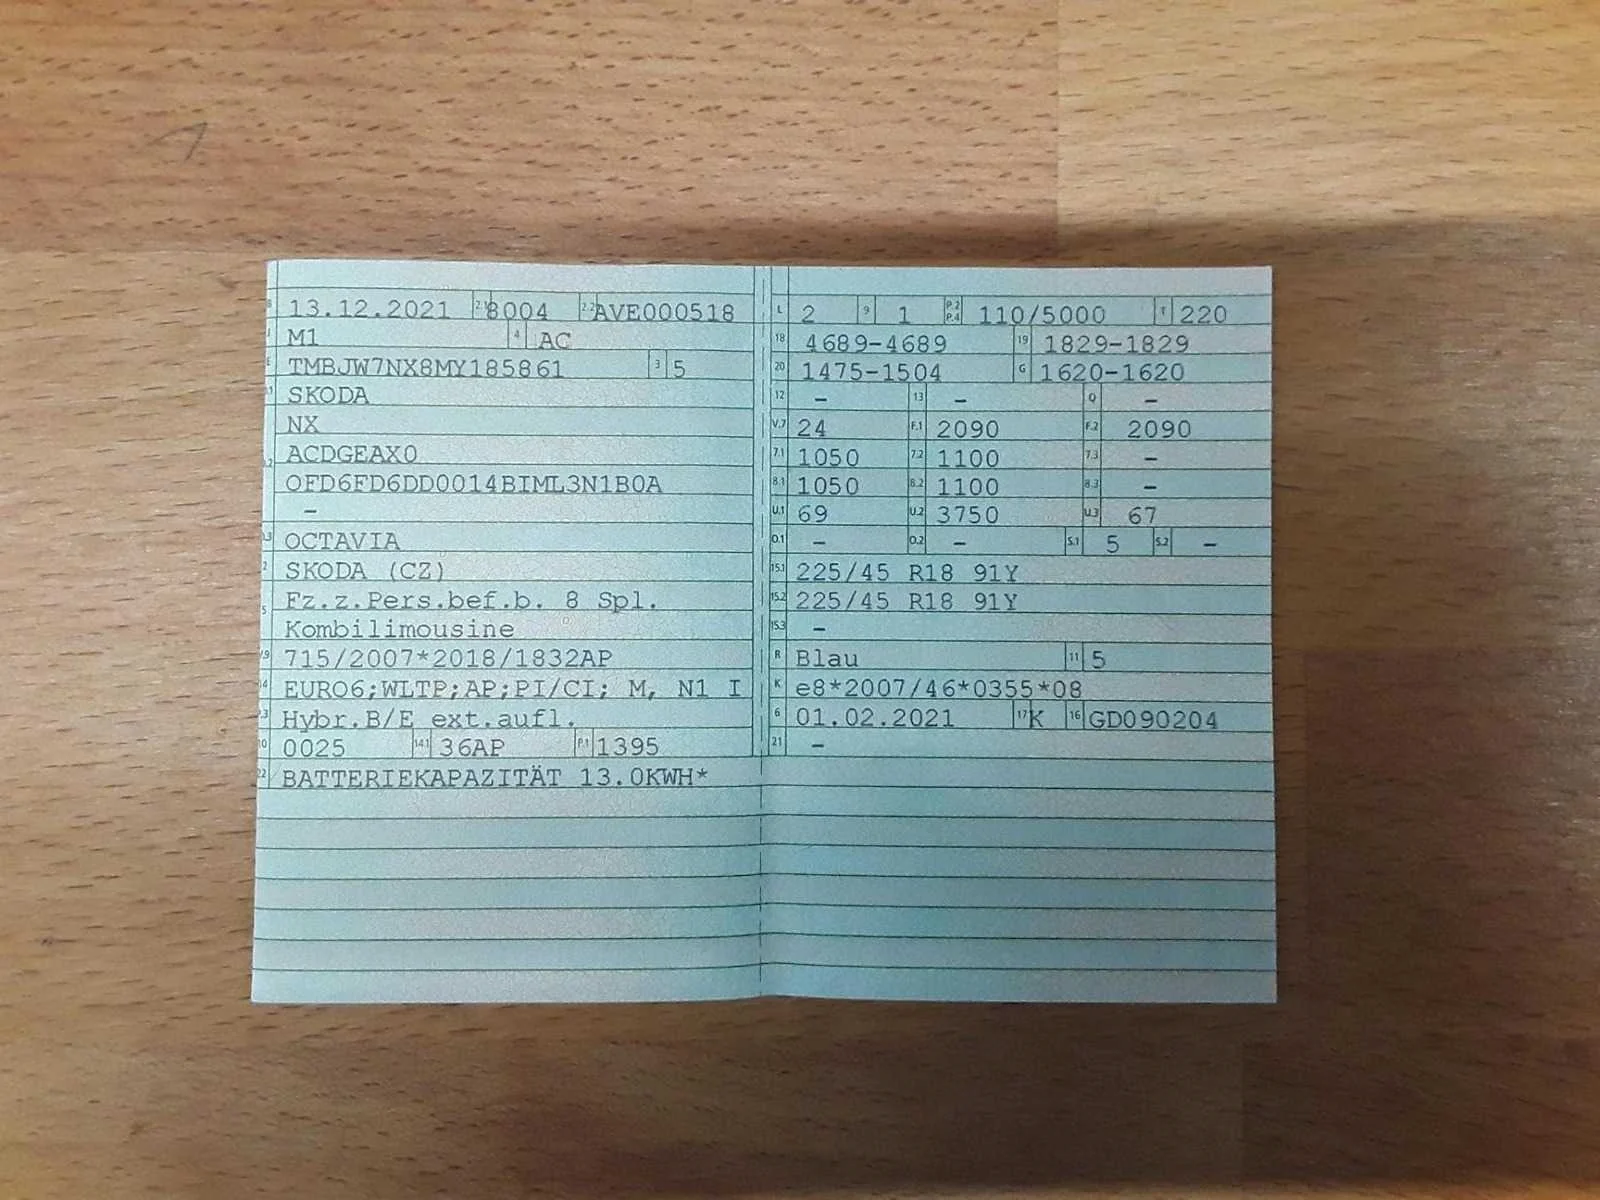 B 13.12.2021 2.1 8004 2.2 AVE000518
J M1 4 AC
E TMBJW7NX8MY185861 3 5
SKODA
NX
ACDGEAX0
OFD6FD6DD0014BIML3N1B0A
–
OCTAVIA
2 SKODA (CZ)
5 Fz.z.Pers.bef.b. 8 Spl.
Kombilimousine
715/2007*2018/1832AP
EURO6;WLTP;AP;PI/CI; M, N1 I
Hybr.B/E ext.aufl.
10 0025 14.1 36AP P.1 1395
22 BATTERIEKAPAZITÄT 13.0KWH*
L 2 9 1 P.2 P.4 110/5000 T 220
18 4689-4689 19 1829-1829
20 1475-1504 G 1620-1620
12 – 13 – Q –
V.7 24 F.1 2090 F.2 2090
7.1 1050 7.2 1100 7.3 –
8.1 1050 8.2 1100 8.3 –
U.1 69 U.2 3750 U.3 67
O.1 – O.2 – S.1 5 S.2 –
15.1 225/45 R18 91Y
15.2 225/45 R18 91Y
15.3 –
R Blau 11 5
K e8*2007/46*0355*08
6 01.02.2021 17 K 16 GD090204
21 –